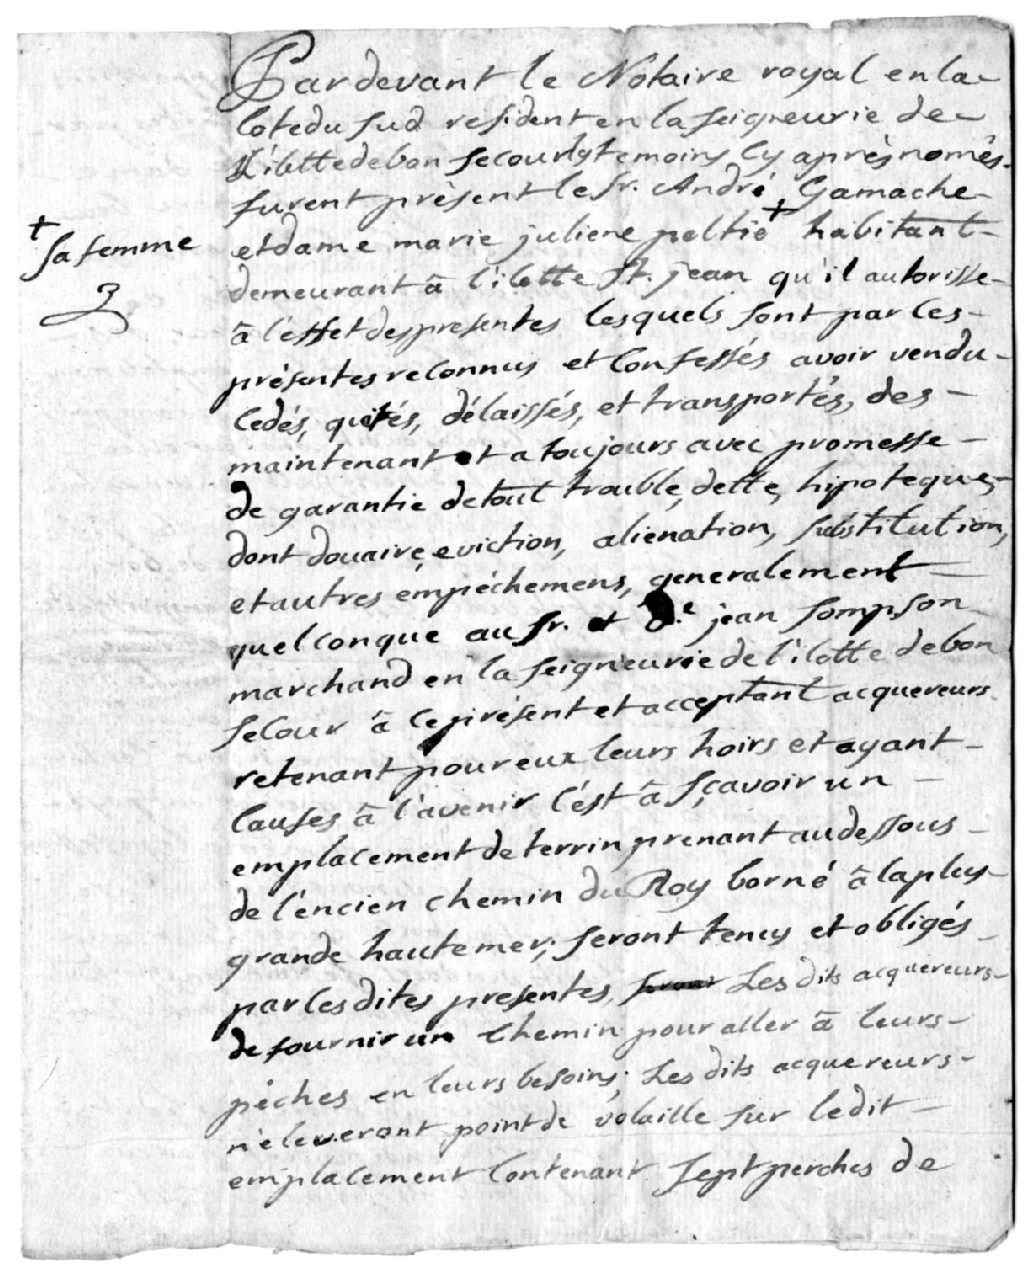 Pardevant le Notaire royal en la
Cotedu sud resident en la seigneurie de
L'ilettedebon secour lyt emoins cy après només.
furent présent le sr. André Gamache
et dame marie juliene peltié + habitant
+ sa femme
demeurant â l'ilette St. jean qu'il autorisse
â l'effet des presentes lesquels sont par ces
présentes reconnus et Confessés avoir vendu
Cedés, quités, délaissés, et transportés, des
maintenant et a toujours avec promesse
de garantie detout trouble, dette, hipoteque,
dont douaire, eviction, alienation, substitution,
et autres empéchemens, generalement
quelconque au sr. et D.e jean sompson
marchand en la seigneurie de l'ilette de bon
secour â ce présent et acceptant acquereurs
retenant pour eux leurs hoirs et ayant
Causes â l'avenir c'est â sçavoir un
emplacement de terrin prenant au dessous
de l'éncien chemin du Roy borné â la plus
grande hautemer; seront tenus et obligés
par les dites presentes, Les dits acquereurs
de fournir un chemin pour aller â leurs
péches en leurs besoins. Les dits acquereurs
n'eleveront point de volaille sur ledit
emplacement Contenant sept perches de